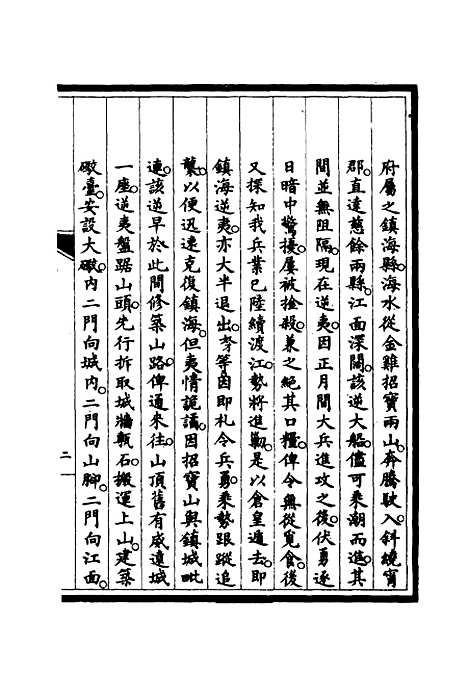 府屬之鎮海縣。海水從金雞招寶兩山。奔騰駛入。斜繞甯
郡。直達慈餘兩縣。江面深闊。該逆大船。儘可乘潮而進。其
間並無阻隔。現在逆夷。因正月間大兵進攻之後。伏勇逐
日暗中驚擾。屢被擒殺。兼之絕其口糧。俾令無從覓食。後
又探知我兵業已陸續渡江。勢將進勦。是以倉皇遁去。即
鎮海逆夷。亦大半退出。等因即札令兵勇。乘勢跟蹤追
襲。以便迅速克復鎮海。但夷情詭譎。因招寶山與鎮城毗
連。該逆早於此間修築山路。俾通來往。山頂舊有威遠城
一座。逆夷盤踞山頭。先行拆取城牆甎石。搬運上山。建築
礮臺。安設大礮。内二門向城内。二門向山腳。二門向江面。
二